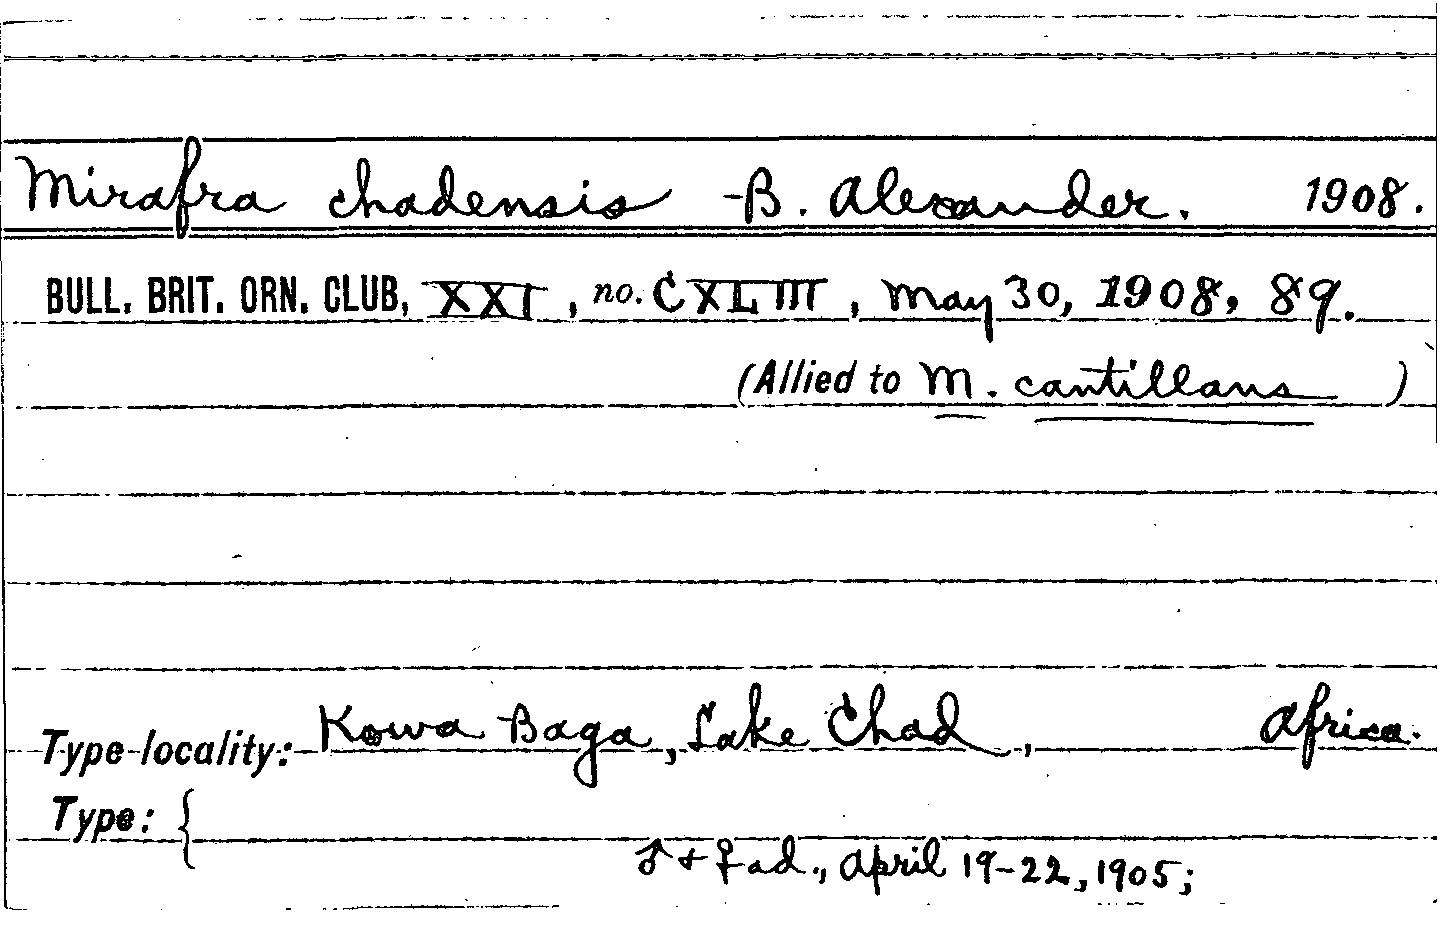 Mirafra chadensis B. Alexander. 1908.
BULL. BRIT. ORN. CLUB, XXI, no. CXLIII, May 30, 1908, 89.
(Allied to M. cantillans )
Type-locality: Kowa Baga, Lake Chad, Africa.
Type: {
♂ + ♀ ad., April 19-22, 1905;